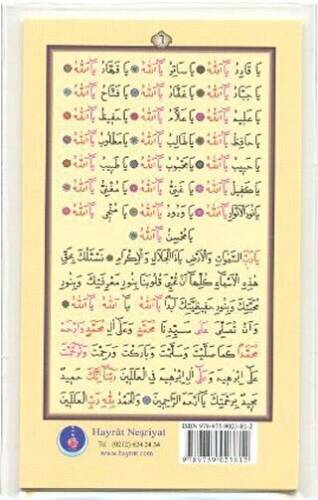 ٦
يَا قَادِرُ يَا اَللّٰهُ ❋ يَا سَاتِرُ يَا اَللّٰهُ ❋ يَا قَهَّارُ يَا اَللّٰهُ
يَا جَبَّارُ يَا اَللّٰهُ ❋ يَا غَفَّارُ يَا اَللّٰهُ ❋ يَا فَتَّاحُ يَا اَللّٰهُ
يَا عَلِيمُ يَا اَللّٰهُ ❋ يَا عَلَّامُ يَا اَللّٰهُ ❋ يَا حَفِيظُ يَا اَللّٰهُ
يَا حَافِظُ يَا اَللّٰهُ ❋ يَا طَالِبُ يَا اَللّٰهُ ❋ يَا مَطْلُوبُ يَا اَللّٰهُ
يَا حَبِيبُ يَا اَللّٰهُ ❋ يَا مَحْبُوبُ يَا اَللّٰهُ ❋ يَا طَبِيبُ يَا اَللّٰهُ
يَا كَفِيلُ يَا اَللّٰهُ ❋ يَا غَنِيُّ يَا اَللّٰهُ ❋ يَا مُغْنِي يَا اَللّٰهُ
يَا نُورَ الْاَنْوَارِ يَا اَللّٰهُ ❋ يَا وَدُودُ يَا اَللّٰهُ ❋ يَا مُنْجِي يَا اَللّٰهُ
يَا مُحْسِنُ يَا اَللّٰهُ
يَا رَبَّ السَّمٰوَاتِ وَالْاَرْضِ يَا ذَا الْجَلَالِ وَالْاِكْرَامِ ❋ نَسْئَلُكَ بِحَقِّ
هٰذِهِ الْاَسْمَاءِ كُلِّهَا اَنْ تُحْيِيَ قُلُوبَنَا بِنُورِ مَعْرِفَتِكَ وَبِنُورِ
مَحَبَّتِكَ وَبِنُورِ حَفِيظِيَّتِكَ اَبَدًا يَا اَللّٰهُ يَا اَللّٰهُ يَا اَللّٰهُ ❋
وَاَنْ تُصَلِّيَ عَلٰى سَيِّدِنَا مُحَمَّدٍ وَعَلٰى اٰلِ مُحَمَّدٍ وَارْحَمْ
مُحَمَّدًا كَمَا صَلَّيْتَ وَسَلَّمْتَ وَبَارَكْتَ وَرَحِمْتَ وَتَرَحَّمْتَ
عَلٰى اِبْرٰهِيمَ وَعَلٰى اٰلِ اِبْرٰهِيمَ فِي الْعَالَمِينَ رَبَّنَا اِنَّكَ حَمِيدٌ
مَجِيدٌ بِرَحْمَتِكَ يَا اَرْحَمَ الرَّاحِمِينَ ❋ وَالْحَمْدُ لِلّٰهِ رَبِّ الْعَالَمِينَ
Hayrât Neşriyat
Tel : (0212) 624 24 34
www.hayrat.com
ISBN 978-975-9023-81-2
9789759023812